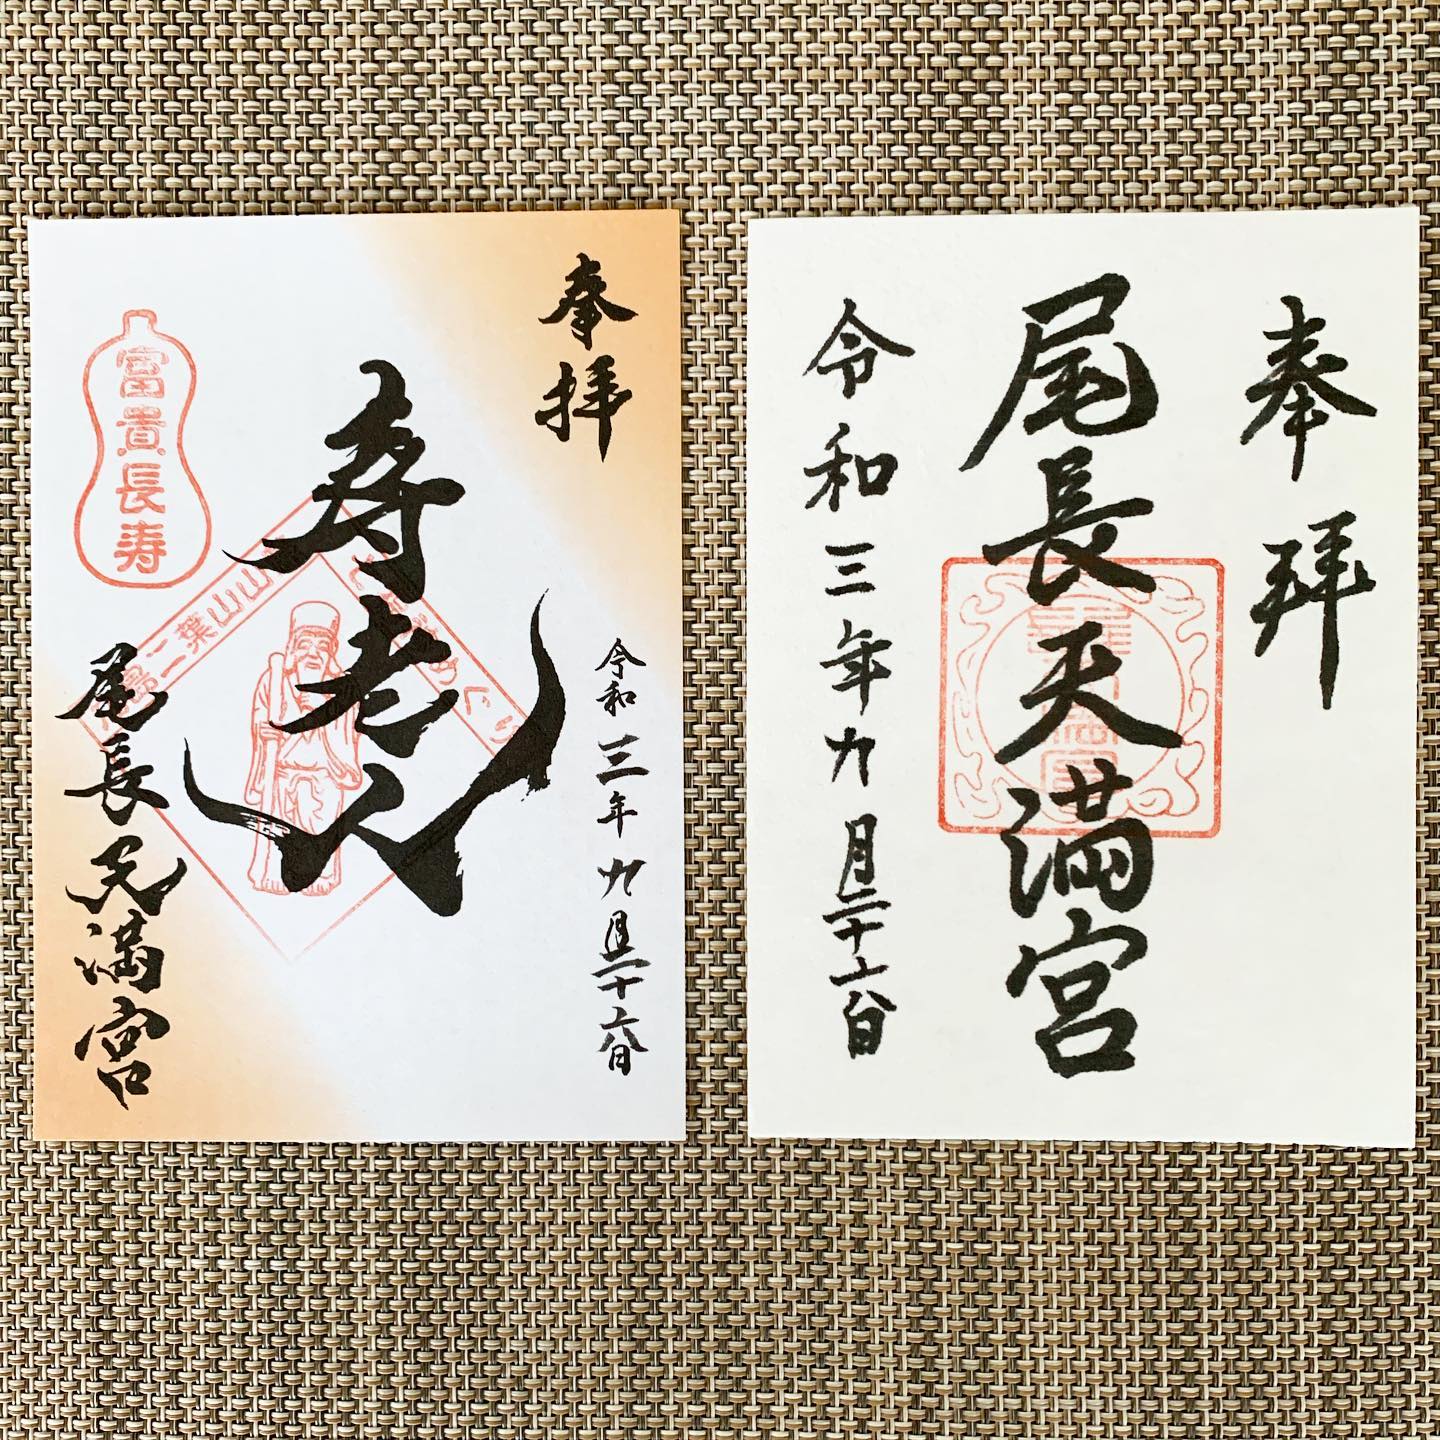 奉拝
尾長天満宮
令和三年九月二十六日
奉拝
令和三年九月二十六日
寿老人
富貴長寿
二葉山山
尾長天満宮